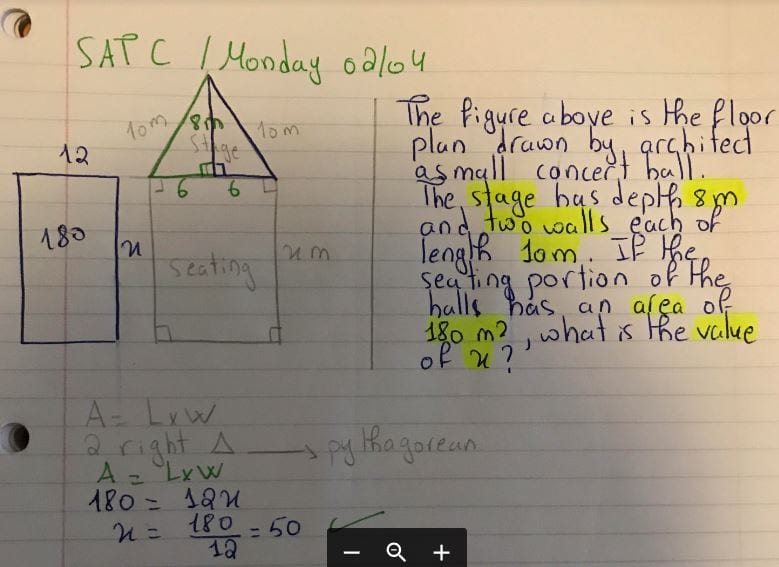 SAT C / Monday 02/04
10m
8m
10m
Stage
12
6
6
180
x
seating
x m
The figure above is the floor
plan drawn by architect
a small concert hall.
The stage has depth 8m
and two walls each of
length 10m. If the
seating portion of the
halls has an area of
180 m², what is the value
of x?
A = L x W
2 right △ → pythagorean
A = L x W
180 = 12x
x = 180/12 = 50